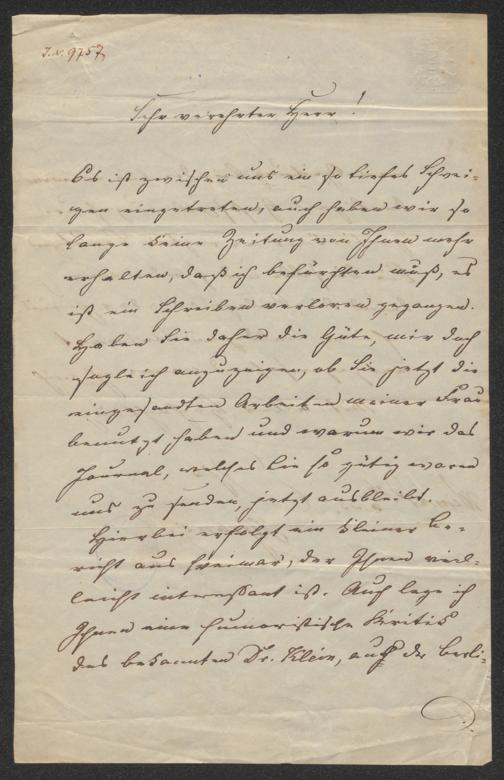 J.N. 9757
Sehr verehrter Herr!
Es ist zwischen uns ein so tiefes Schwei-
gen eingetreten, auch haben wir so
lange keine Zeitung von Ihnen mehr
erhalten, daß ich befürchten muß, es
ist ein Schreiben verloren gegangen.
Haben Sie daher die Güte, mir doch
sogleich anzuzeigen, ob Sie jetzt die
eingesandten Arbeiten meiner Frau
benutzt haben und warum wir das
Journal, welches Sie so gütig waren
uns zu senden, jetzt ausbleibt.
Hierbei erfolgt ein kleiner Be-
richt aus Weimar, der Ihnen viel-
leicht interessant ist. Auch lege ich
Ihnen eine humoristische Kritik
des bekannten Dr. Klein, auch der Berli-